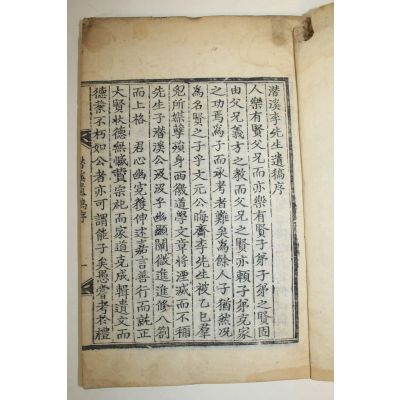 潜溪李先生遺稿序
人樂有賢父兄而亦樂有賢子弟子弟之賢固
由父兄義方之教而父兄之賢亦賴子弟克家
之功焉爲子而承考者尠爲餘人子猶然況
爲名賢之子乎文元公晦齋李先生被乙巳羣
兇所媒孽殞身西徼道學文章将湮滅而不稱
先生子潜溪公汲汲乎幽顯闡微進進修八劄
而上格 君心幽寃獲伸述嘉言善行而就正
大賢狀德無憾賛宗祀而家道克成輯遺文而
德業不朽如公者亦可謂能子矣愚嘗考於禮
潜溪遺稿序
一